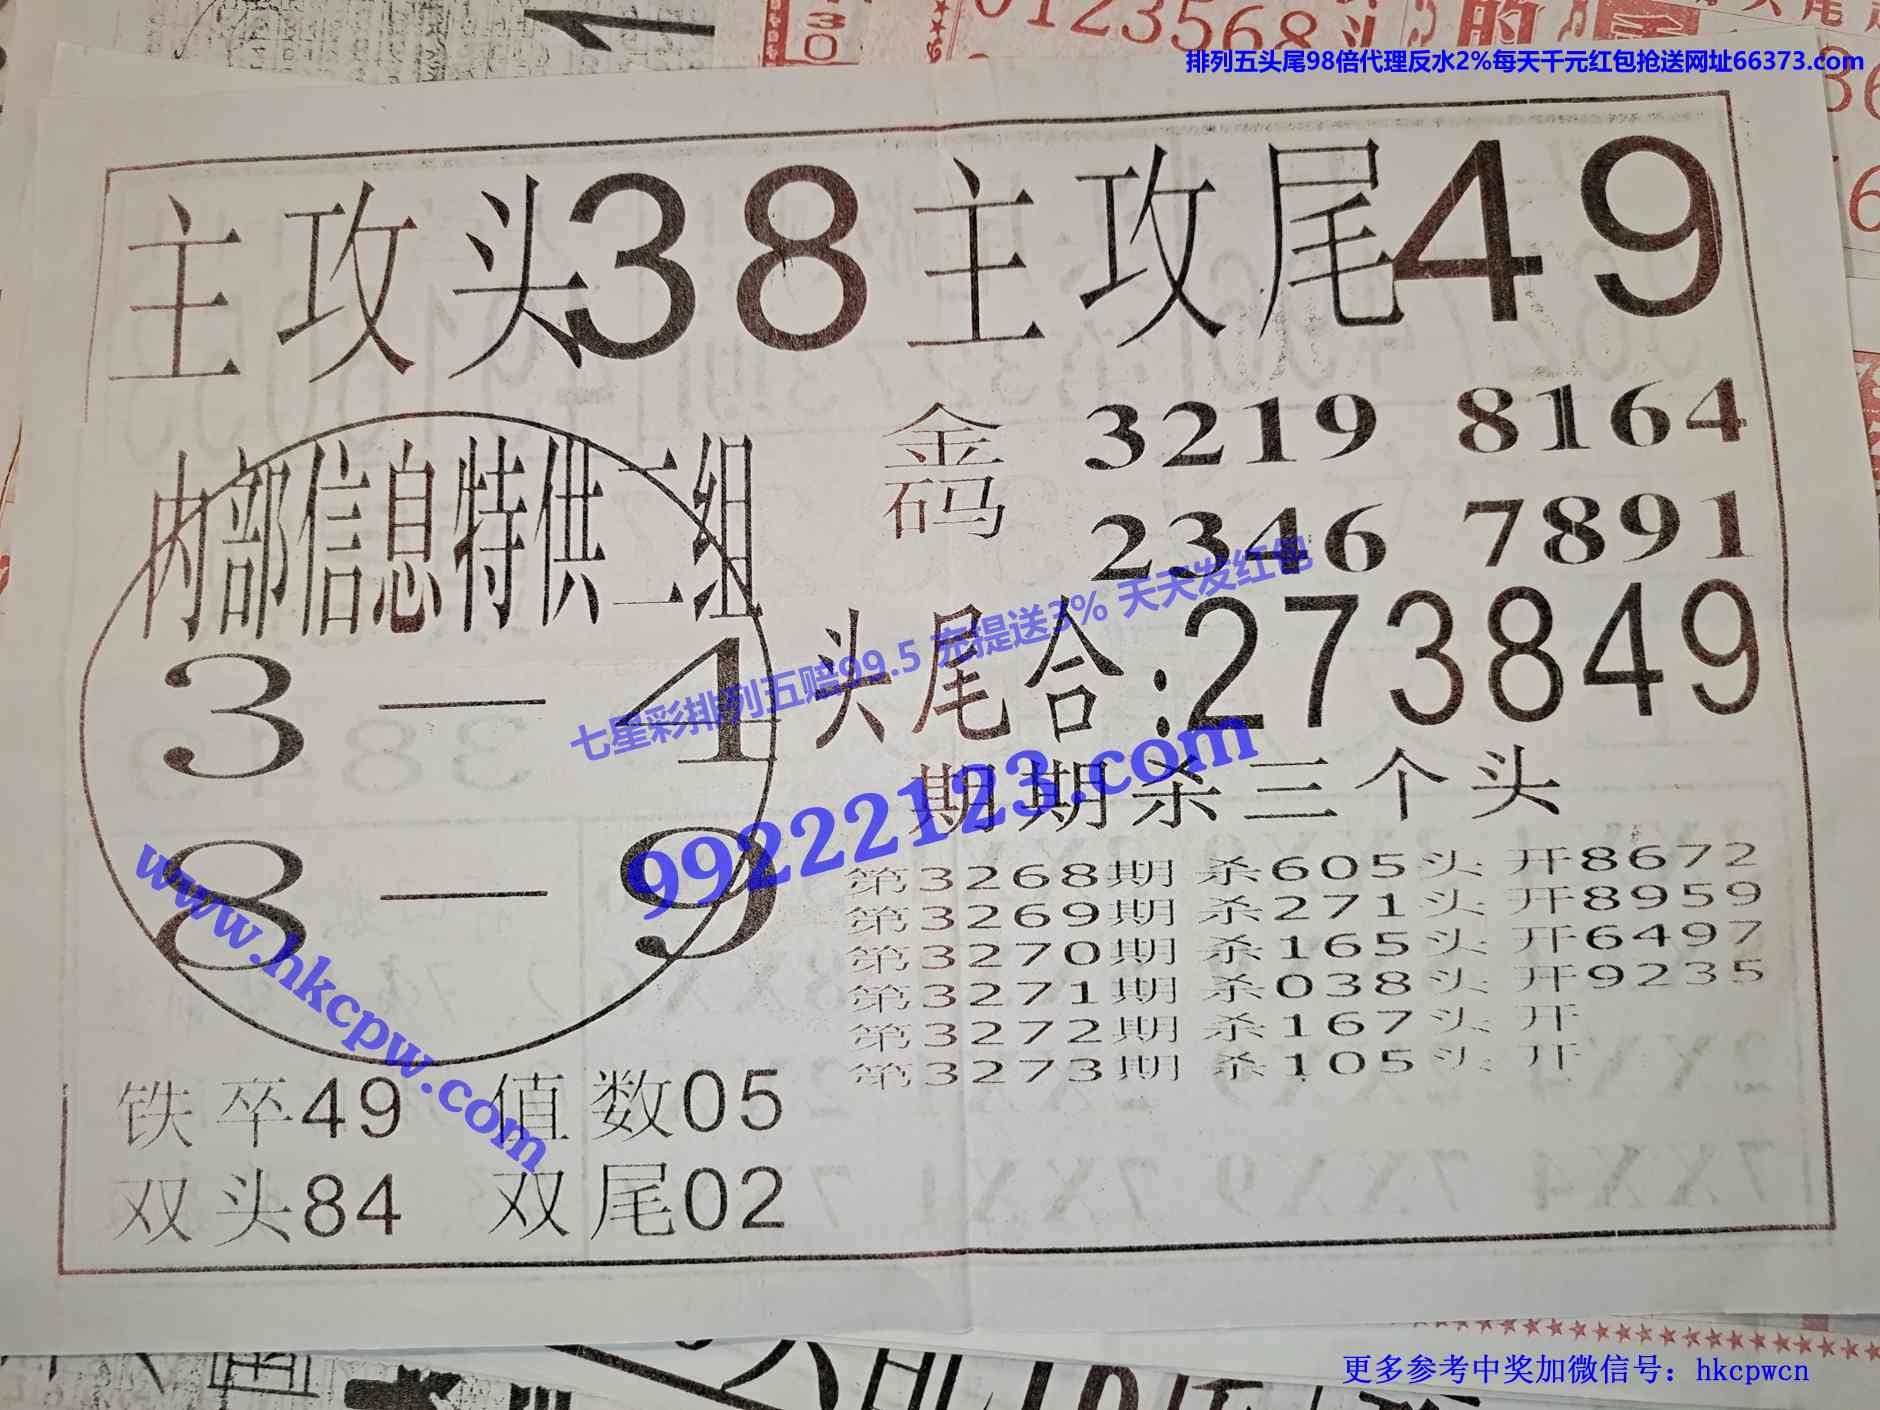 排列五头尾98倍代理反水2%每天千元红包抢送网址66373.com
主攻头38 主攻尾49
内部信息特供二组
3—4
8—9
金码 3219 8164
2346 7891
七星彩排列五赔99.5 充提送3% 天天发红包
头尾合:273849
99222123.com
期期杀三个头
第3268期 杀605头 开8672
第3269期 杀271头 开8959
第3270期 杀165头 开6497
第3271期 杀038头 开9235
第3272期 杀167头 开
第3273期 杀105头 开
www.hkcpw.com
铁卒49 值数05
双头84 双尾02
更多参考中奖加微信号：hkcpwcn